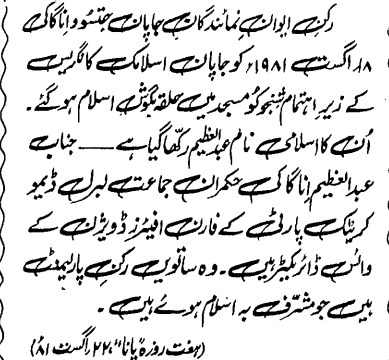 رکن ایوان نمائندگان جاپان جتسوو اناگاکی
۱۸ اگست ۱۹۸۱ء کو جاپان اسلامک کانگریس
کے زیر اہتمام شنجوکو مسجد میں حلقہ بگوش اسلام ہوگئے۔
اُن کا اسلامی نام عبدالعظیم رکھا گیا ہے ــــ جناب
عبدالعظیم اناگاکی حکمران جماعت لبرل ڈیمو
کریٹک پارٹی کے فارن افیئرز ڈویژن کے
وائس ڈائریکٹر ہیں۔ وہ ساتویں رکنِ پارلیمنٹ
ہیں جو مشرّف بہ اسلام ہوئے ہیں۔
(ہفت روزہ "یانا"، ۲۲ اگست ۸۱ء)